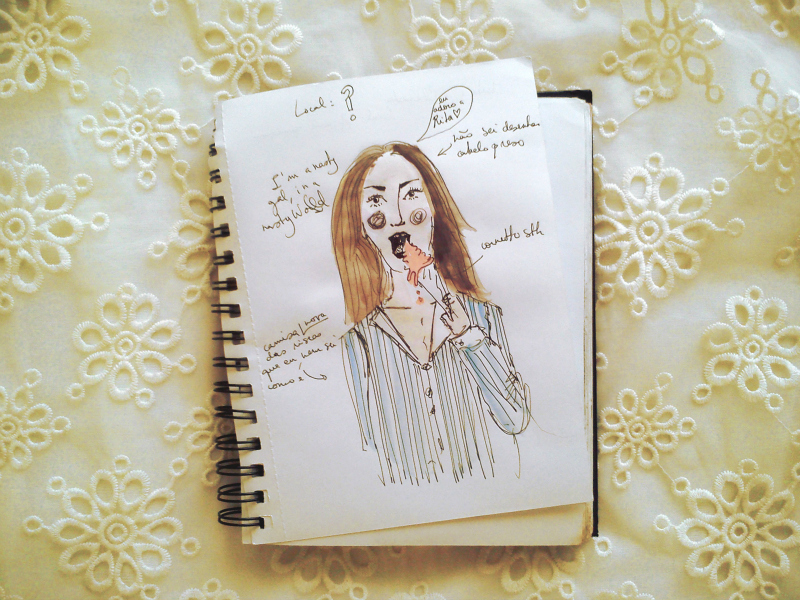 Local: ?
Eu
adoro a
Rita ♡
não sei desenhar
cabelo preso
I'm a nasty
gal, in a
nasty World
cornetto sth
camisa nova
das riscas
que eu nem sei
como é